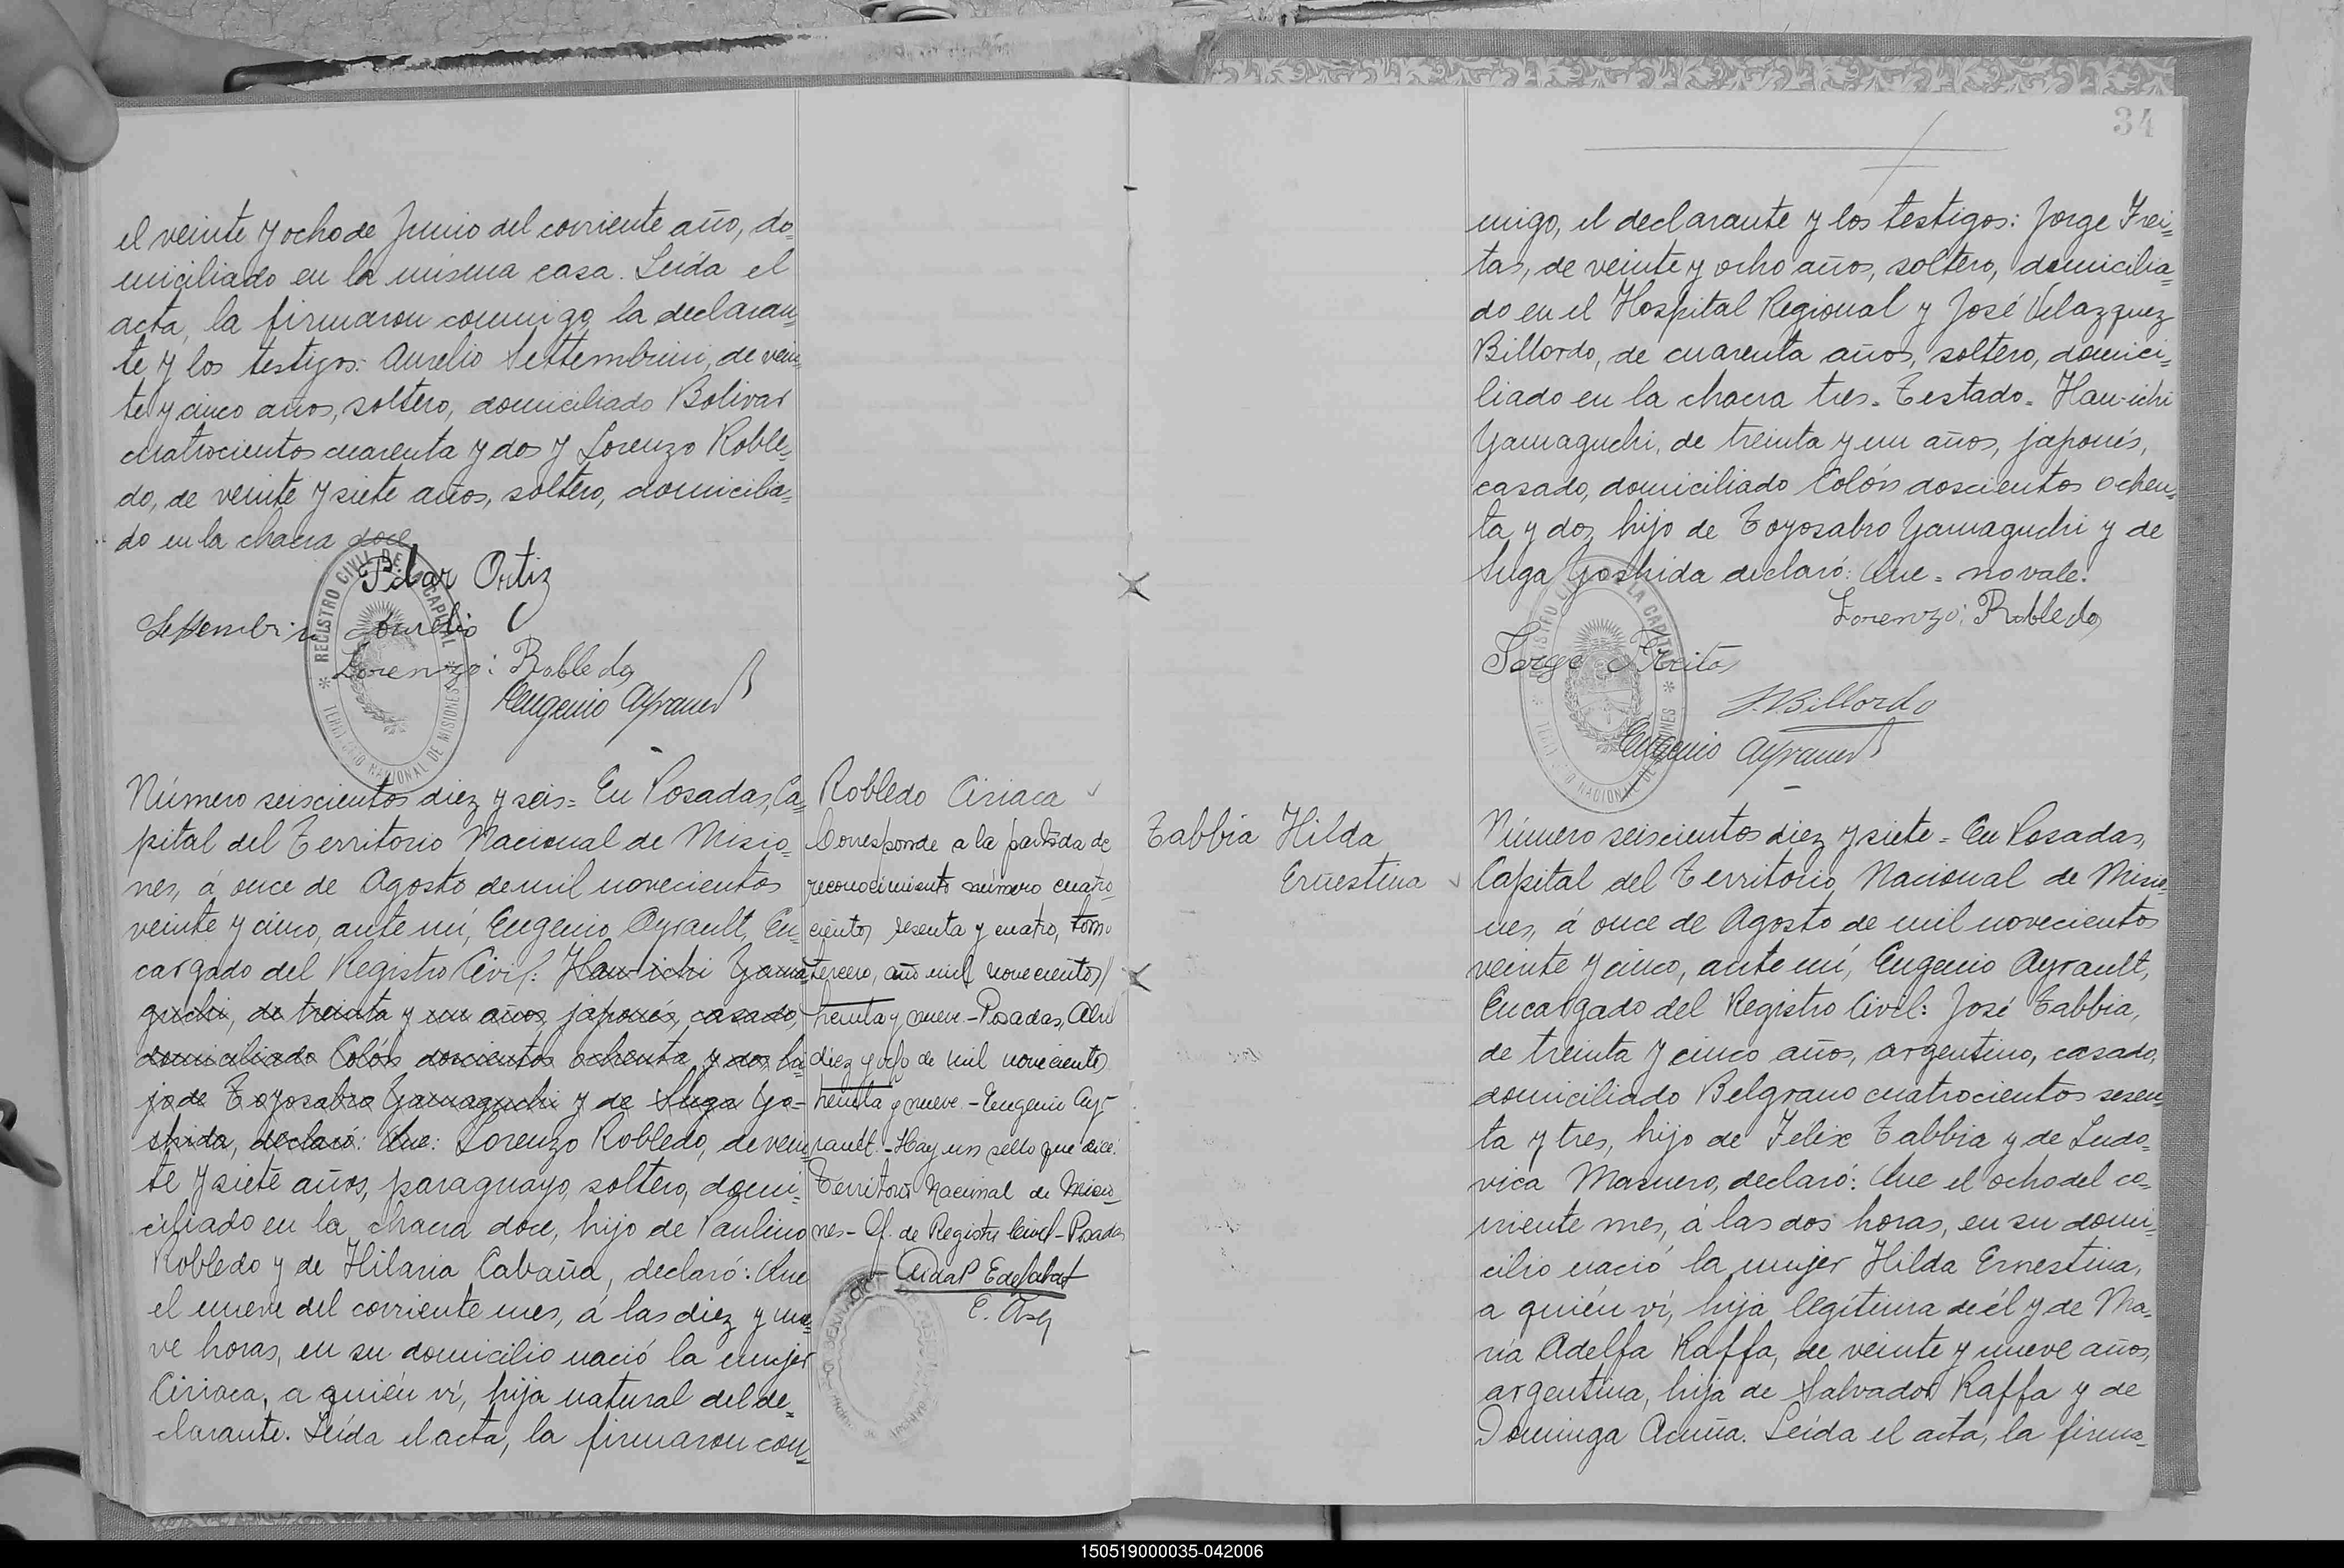 el veinte y ocho de Junio del corriente año, do=
miciliado en la misma casa. Leída el
acta, la firmaron conmigo, la declaran=
te y los testigos: Aurelio Settembrini, de vein=
te y cinco años, soltero, domiciliado Bolivar
cuatrocientos cuarenta y dos y Lorenzo Roble=
do, de veinte y siete años, soltero, domicilia=
do en la chacra doce
Pilar Ortiz
Settembrini Aurelio
Lorenzo: Robledo
Eugenio Ayrault
REGISTRO CIVIL DE LA CAPITAL
TERRITORIO NACIONAL DE MISIONES
Número seiscientos diez y seis= En Posadas, Ca=
pital del Territorio Nacional de Misio=
nes, á once de Agosto de mil novecientos
veinte y cinco, ante mí, Eugenio Ayrault, En=
cargado del Registro Civil: Han-ichi Yama=
guchi, de treinta y un años, japonés, casado,
domiciliado Colón doscientos ochenta y dos, hi=
jo de Toyosabro Yamaguchi y de Suga Yo=
shida, declaró: Que: Lorenzo Robledo, de vein=
te y siete años, paraguayo, soltero, domi=
ciliado en la chacra doce, hijo de Paulino
Robledo y de Hilaria Cabaña, declaró: Que
el nueve del corriente mes, á las diez y nue=
ve horas, en su domicilio nació la mujer
Ciriaca, a quién ví, hija natural del de=
clarante. Leída el acta, la firmaron con=
Robledo Ciriaca
Corresponde a la partida de
reconocimiento número cuatro=
cientos sesenta y cuatro, tomo
tercero, año mil novecientos
treinta y nueve - Posadas, Abril
diez y ocho de mil novecientos
treinta y nueve - Eugenio Ay-
rault. - Hay un sello que dice:
Territorio Nacional de Misio=
nes - Of. de Registro Civil - Posadas
34
migo, el declarante y los testigos: Jorge Frei=
tas, de veinte y ocho años, soltero, domicilia=
do en el Hospital Regional y José Velazquez
Billordo, de cuarenta años, soltero, domici=
liado en la chacra tres. Testado. Han-ichi
Yamaguchi, de treinta y un años, japonés,
casado, domiciliado Colón doscientos ochen=
ta y dos, hijo de Toyosabro Yamaguchi y de
Suga Yoshida declaró: Que = no vale.
Lorenzo: Robledo
Jorge Freitas
J. V. Billordo
Eugenio Ayrault
Tabbia Hilda
Ernestina
Número seiscientos diez y siete = En Posadas,
Capital del Territorio Nacional de Misio=
nes, á once de Agosto de mil novecientos
veinte y cinco, ante mí, Eugenio Ayrault,
Encargado del Registro Civil: José Tabbia,
de treinta y cinco años, argentino, casado,
domiciliado Belgrano cuatrocientos sesen=
ta y tres, hijo de Felix Tabbia y de Ludo=
vica Masuero, declaró: Que el ocho del co=
rriente mes, á las dos horas, en su domi=
cilio nació la mujer Hilda Ernestina,
a quién ví, hija legítima de él y de Ma=
ría Adelfa Raffa, de veinte y nueve años,
argentina, hija de Salvador Raffa y de
Dominga Acuña. Leída el acta, la firma=
150519000035-042006